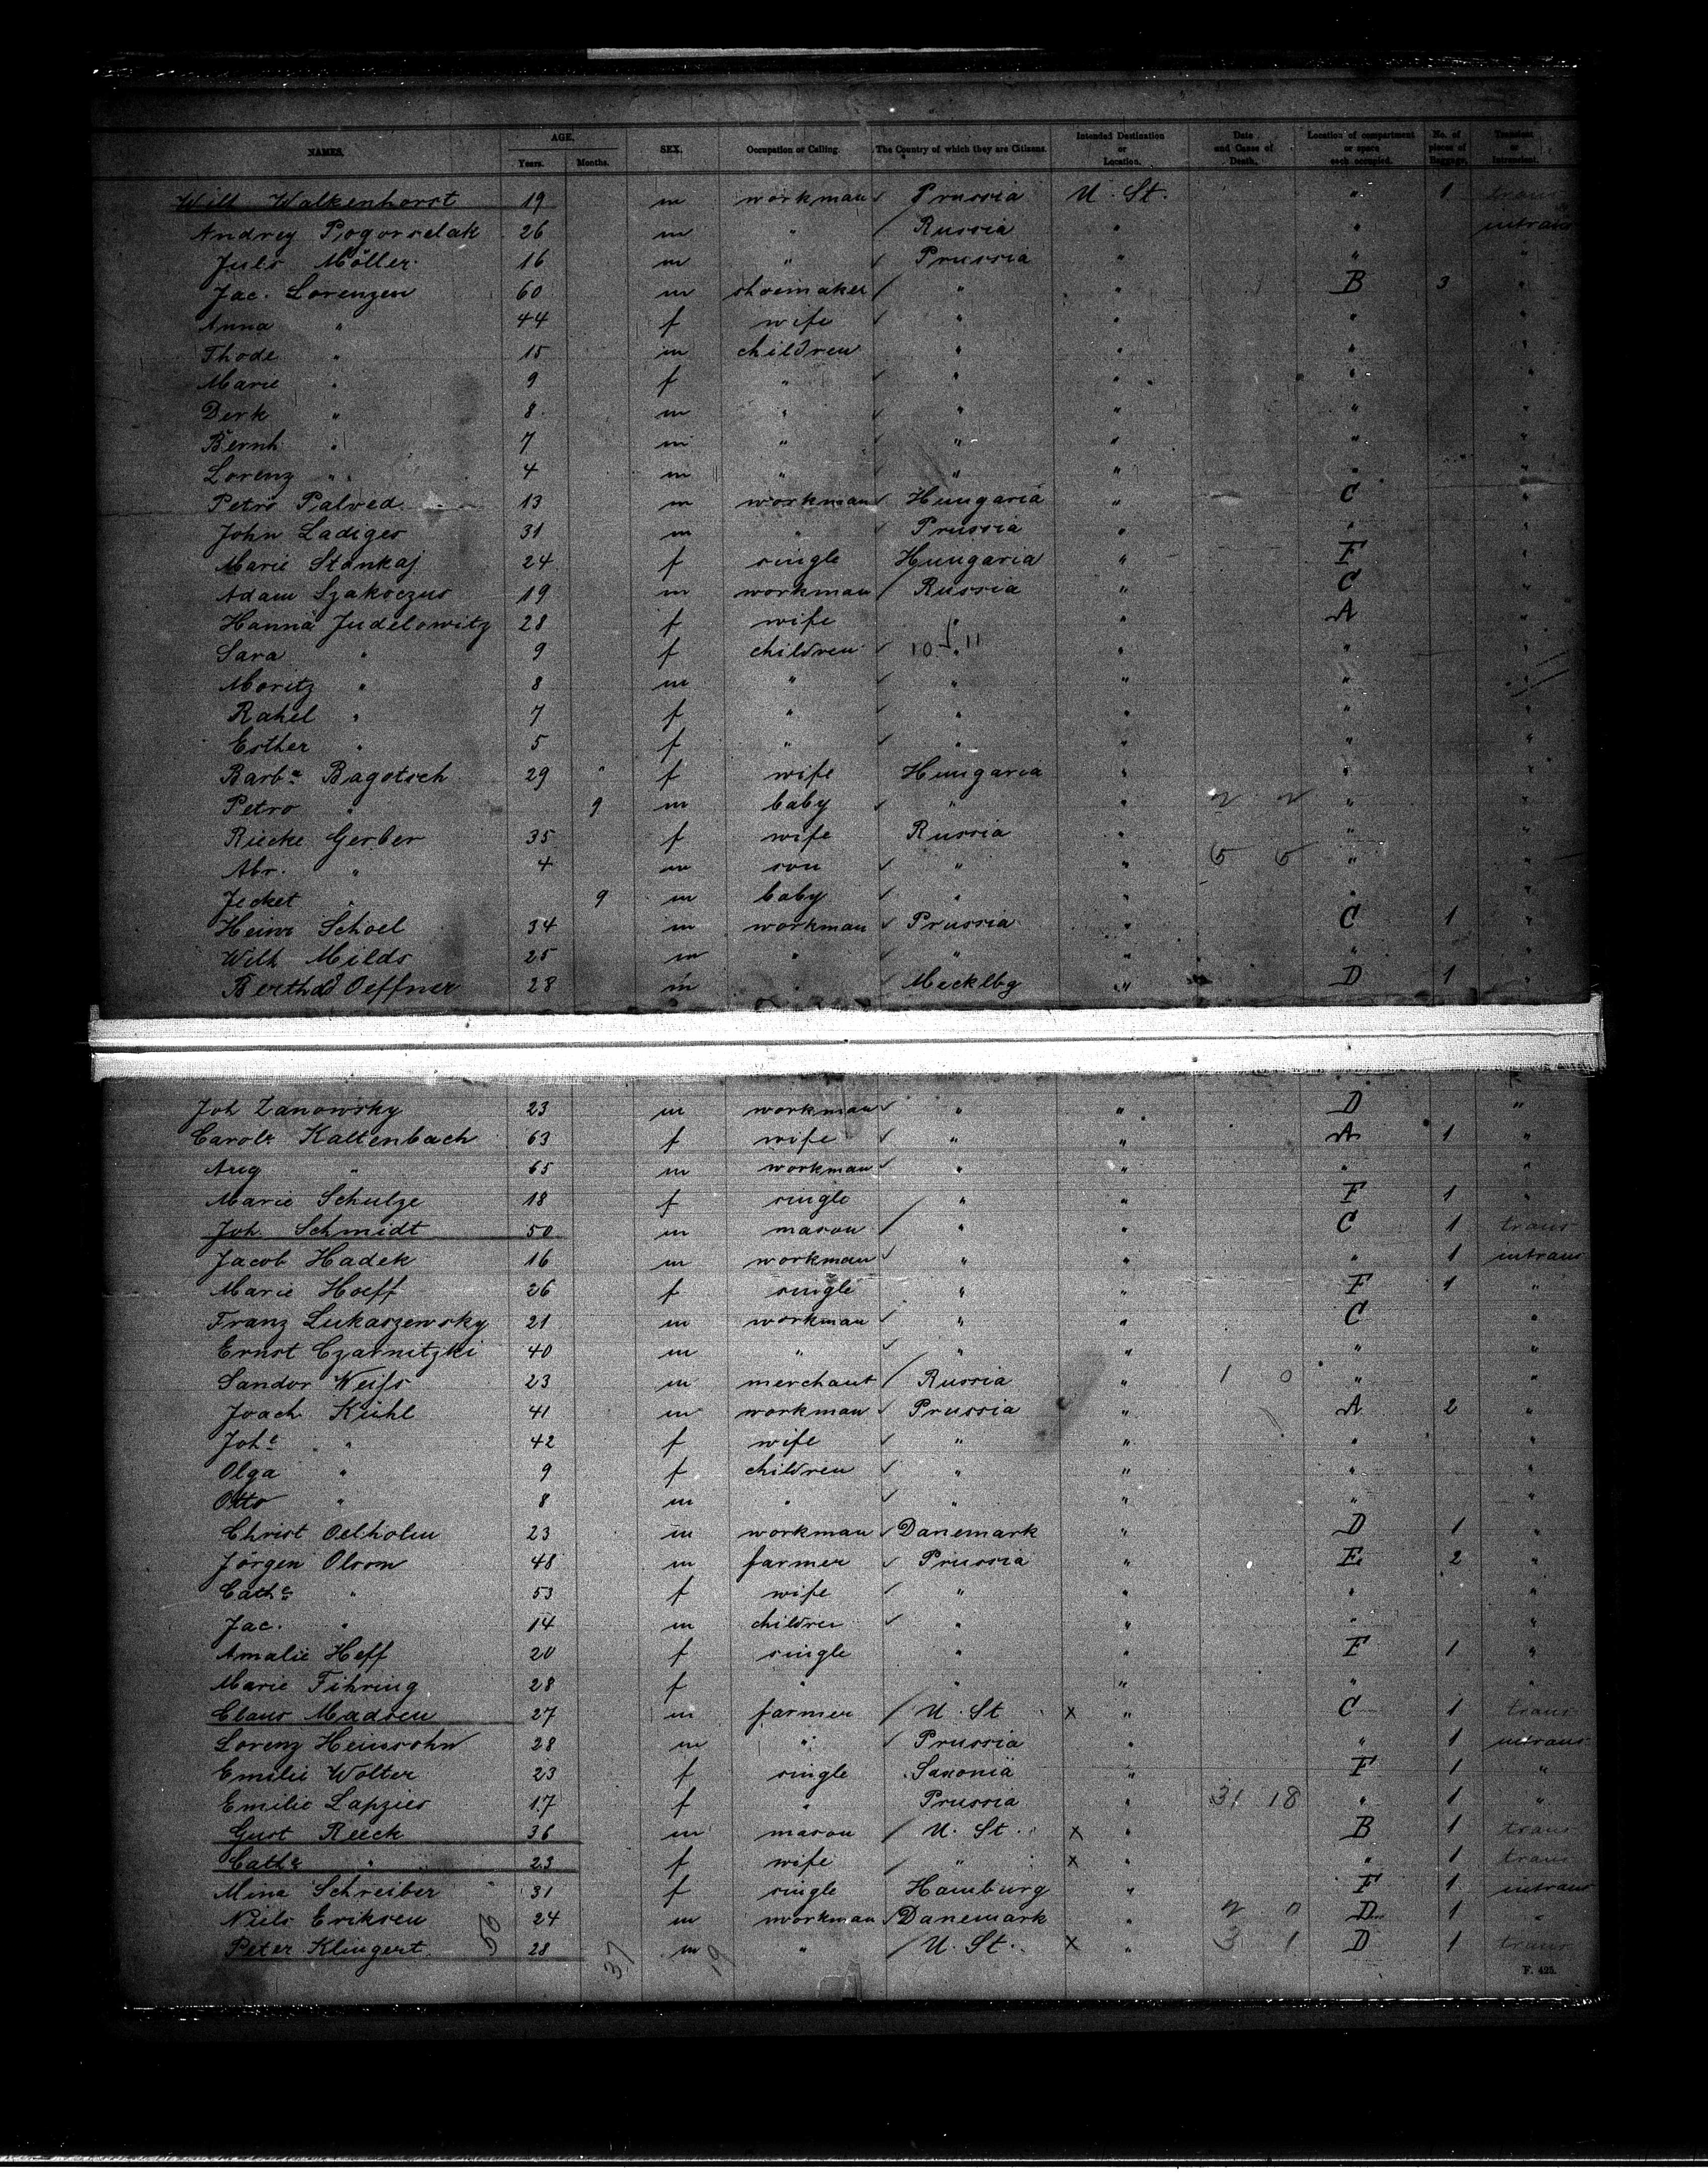 NAMES. AGE. Years. Months. SEX. Occupation or Calling. The Country of which they are Citizens. Intended Destination or Location. Date and Cause of Death. Location of compartment or space each occupied. No. of pieces of Baggage. Transient or Intransient.
Wilh Walkenhorst 19 m workman Prussia U. St. " 1 trans
Andrey Pogorselak 26 m " Russia " " intrans
Juls Möller 16 m " Prussia " " "
Jac. Lorenzen 60 m shoemaker " " B 3 "
Anna " 44 f wife " " " "
Thode " 15 m children " " " "
Marie " 9 f " " " " "
Derk " 8 m " " " " "
Bernh " 7 m " " " " "
Lorenz " 4 m " " " " "
Petro Palved 13 m workman Hungaria " C "
John Ladiges 31 m " Prussia " " "
Marie Stankaj 24 f single Hungaria " F "
Adam Szakoczus 19 m workman Russia " C "
Hanna Judelowitz 28 f wife " " A "
Sara " 9 f children 10 11 " " " "
Moritz " 8 m " " " " "
Rahel " 7 f " " " " "
Esther " 5 f " " " " "
Barba Bagotsch 29 " f wife Hungaria " " "
Petro " 9 m baby " " 2 2 " "
Riecke Gerber 35 f wife Russia " " "
Abr. " 4 m son " " 5 5 " "
Jecket " 9 m baby " " " "
Heinr Schoel 34 m workman Prussia " C 1 "
Wilh Milds 25 m " " " " "
Berthold Oeffner 28 m " Mecklbg " D 1 "
Joh Zanowsky 23 m workman " " D "
Carole Kaltenbach 63 f wife " " A 1 "
Aug " 65 m workman " " " "
Marie Schulze 18 f single " " F 1 "
Joh. Schmidt 50 m mason " " C 1 trans
Jacob Hadek 16 m workman " " " 1 intrans
Marie Hoeff 26 f single " " F 1 "
Franz Lukaszewsky 21 m workman " " C "
Ernst Czarnitzki 40 m " " " " "
Sandor Weiss 23 m merchant Russia " 1 0 " "
Joach Kühl 41 m workman Prussia " A 2 "
Johe " 42 f wife " " " "
Olga " 9 f children " " " "
Otto " 8 m " " " " "
Christ Oelholm 23 m workman Danemark " D 1 "
Jörgen Olson 48 m farmer Prussia " E 2 "
Cathe " 53 f wife " " " "
Jac. " 14 m children " " " "
Amalie Heff 20 f single " " F 1 "
Marie Fihring 28 f " " " " "
Claus Madsen 27 m farmer U. St x " C 1 trans
Lorenz Heinsohn 28 m " Prussia " " 1 intrans
Emilie Wolter 23 f single Saxonia " F 1 "
Emilie Lapzies 17 f " Prussia " 31 18 " 1 "
Gust Reeck 36 m mason U. St. x " B 1 trans
Cathe " 23 f wife " x " " 1 trans
Mina Schreiber 31 f single Hamburg " F 1 intrans
Niels Eriksen 24 m workman Danemark " 2 0 D 1 "
Peter Klingert 56 28 37 m 19 " U. St. x " 3 1 D 1 trans
F. 425.